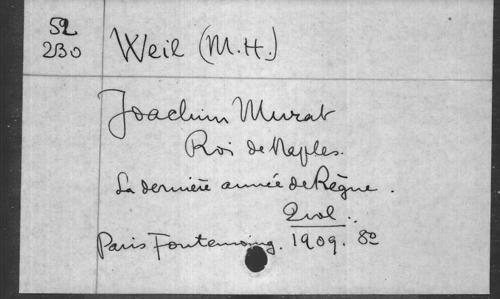 52
230
Weil (M.H.)
Joachim Murat
Roi de Naples.
La dernière année de Règne.
2 vol.
Paris Fontemoing. 1909. 8º